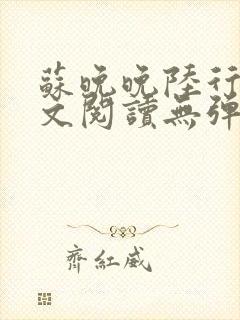 蘇晚晚陸行
文閱讀無彈
齊紅威